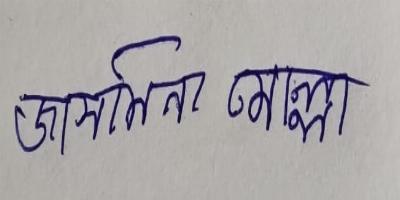 জাসমিনা মোল্লা